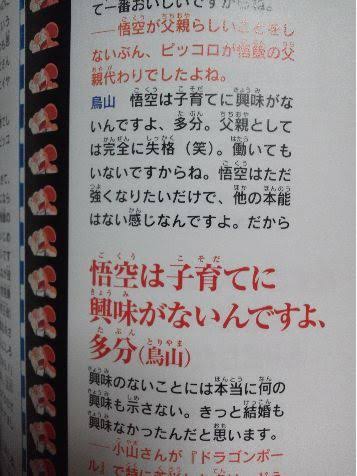 て一番おいしいですからね。
――悟空が父親らしいことをし
ないぶん、ピッコロが悟飯の父
親代わりでしたよね。
鳥山　悟空は子育てに興味がな
いんですよ、多分。父親として
は完全に失格（笑）。働いても
いないですからね。悟空はただ
強くなりたいだけで、他の本能
はない感じなんですよ。だから
悟空は子育てに
興味がないんですよ、
多分（鳥山）
興味のないことには本当に何の
興味も示さない。きっと結婚も
興味なかったんだと思います。
――小山さんが『ドラゴンボー